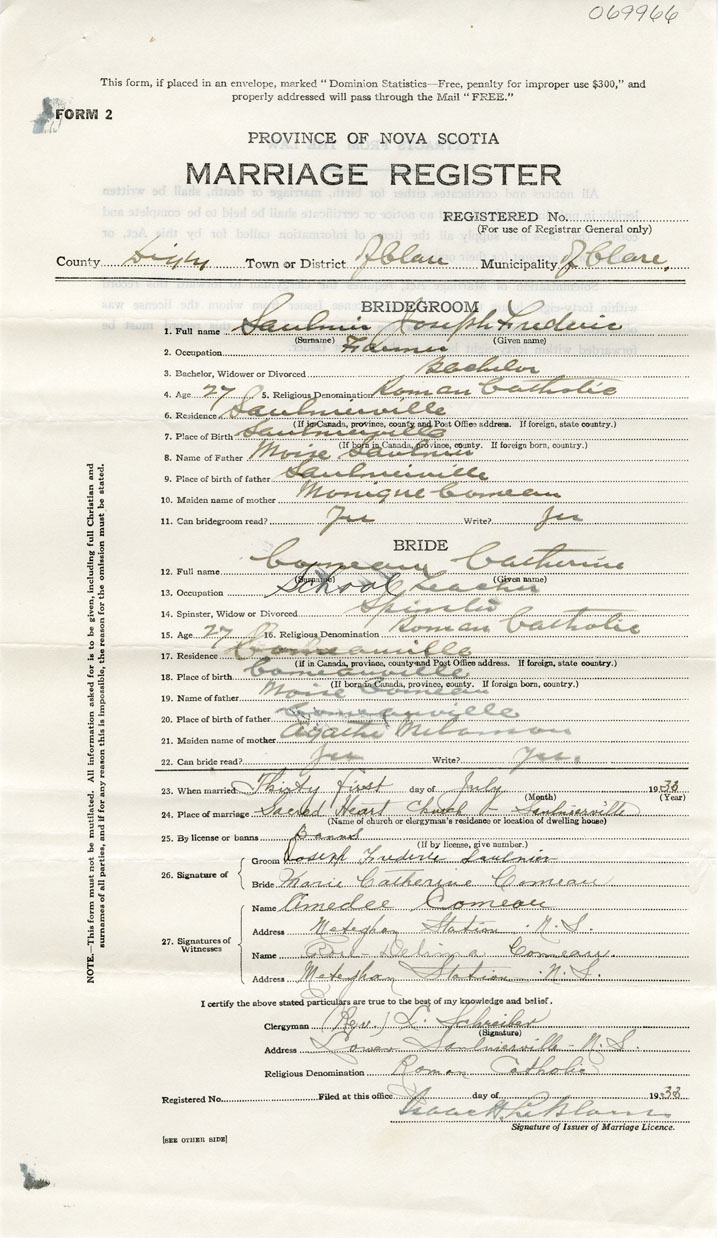 069966
This form, if placed in an envelope, marked "Dominion Statistics—Free, penalty for improper use $300," and
properly addressed will pass through the Mail "FREE."
FORM 2
PROVINCE OF NOVA SCOTIA
MARRIAGE REGISTER
REGISTERED No.
(For use of Registrar General only)
County Digby Town or District of Clare Municipality of Clare
BRIDEGROOM
1. Full name Saulnier Joseph Frederic
(Surname) (Given name)
2. Occupation Farmer
3. Bachelor, Widower or Divorced Bachelor
4. Age 27 5. Religious Denomination Roman Catholic
6. Residence Saulnierville
(If in Canada, province, county and Post Office address. If foreign, state country.)
7. Place of Birth Saulnierville
(If born in Canada, province, county. If foreign born, country.)
8. Name of Father Moise Saulnier
9. Place of birth of father Saulnierville
10. Maiden name of mother Monique Comeau
11. Can bridegroom read? Yes Write? Yes
BRIDE
12. Full name Comeau Catherine
(Surname) (Given name)
13. Occupation School teacher
14. Spinster, Widow or Divorced Spinster
15. Age 27 16. Religious Denomination Roman Catholic
17. Residence Comeauville
(If in Canada, province, county and Post Office address. If foreign, state country.)
18. Place of birth Comeauville
(If born in Canada, province, county. If foreign born, country.)
19. Name of father Moise Comeau
20. Place of birth of father Comeauville
21. Maiden name of mother Agathe Melanson
22. Can bride read? Yes Write? Yes.
23. When married Thirty first day of July 1933
(Month) (Year)
24. Place of marriage Sacred Heart Church Saulnierville
(Name of church or clergyman's residence or location of dwelling house)
25. By license or banns Banns
(If by license, give number.)
26. Signature of
Groom Joseph Frederic Saulnier
Bride Marie Catherine Comeau
27. Signatures of Witnesses
Name Amedee Comeau
Address Meteghan Station N.S.
Name Delina Comeau.
Address Meteghan Station N.S.
I certify the above stated particulars are true to the best of my knowledge and belief.
Clergyman (Rev.) L. Schreiber
(Signature)
Address Lower Saulnierville - N.S.
Religious Denomination Roman Catholic
Registered No. Filed at this office day of 1933
Isaac H LeBlanc
Signature of Issuer of Marriage Licence.
[SEE OTHER SIDE]
NOTE.—This form must not be mutilated. All information asked for is to be given, including full Christian and
surnames of all parties, and if for any reason this is impossible, the reason for the omission must be stated.